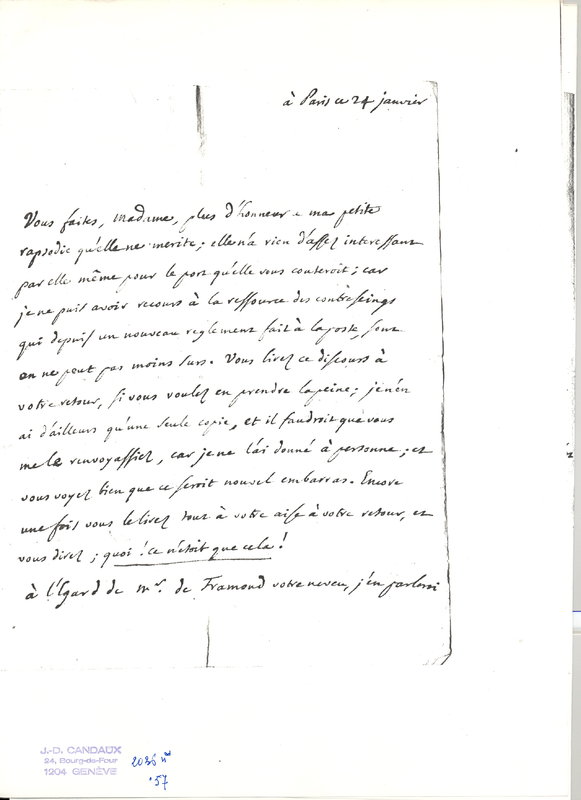 à Paris ce 24 janvier
Vous faites, Madame, plus d'honneur a ma petite
rapsodie qu'elle ne merite; elle n'a rien d'assez interessant
par elle même pour le port qu'elle vous couteroit; car
je ne puis avoir recours à la ressource des contreseings
qui depuis un nouveau reglement fait à la poste, sont
on ne peut pas moins surs. Vous lirez ce discours à
votre retour, si vous voulez en prendre la peine; je n'en
ai d'ailleurs qu'une seule copie, et il faudroit que vous
me le renvoyassiez, car je ne l'ai donné à personne; et
vous voyez bien que ce seroit nouvel embarras. Encore
une fois vous le lirez tout à votre aise à votre retour, et
vous direz; quoi! ce n'étoit que cela!
à l'Egard de mr. de Framond votre neveu, j'en parlerai
J.-D. CANDAUX
24, Bourg-de-Four
1204 GENÈVE
57